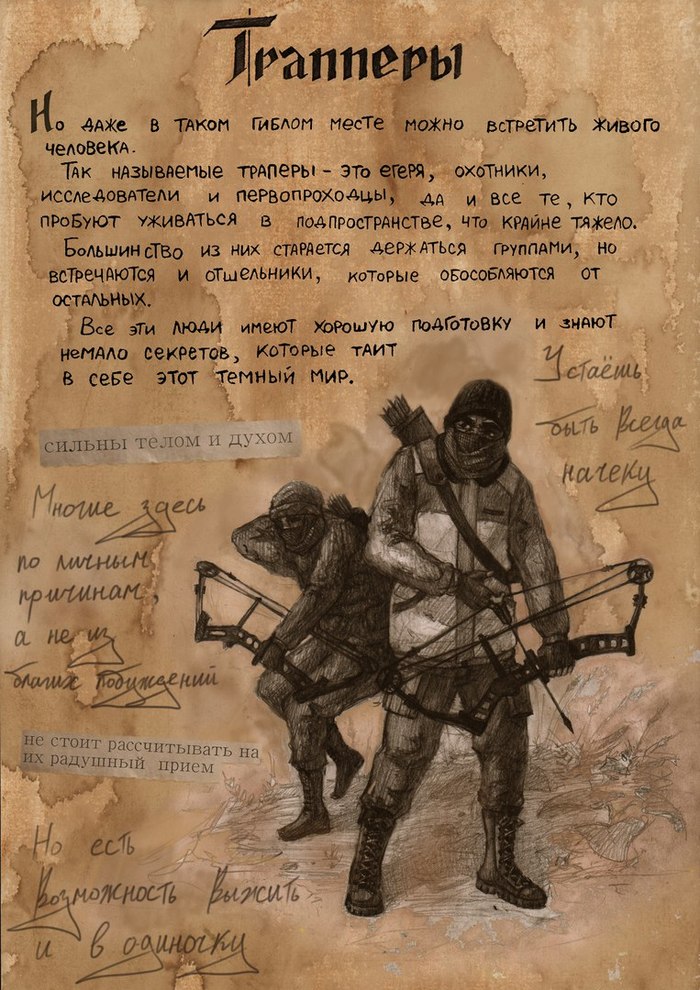 Трапперы
Но даже в таком гиблом месте можно встретить живого
человека.
Так называемые траперы - это егеря, охотники,
исследователи и первопроходцы, да и все те, кто
пробуют уживаться в подпространстве, что крайне тяжело.
Большинство из них старается держаться группами, но
встречаются и отшельники, которые обособляются от
остальных.
Все эти люди имеют хорошую подготовку и знают
немало секретов, которые таит
в себе этот темный мир.
Устаёшь
быть всегда
начеку
сильны телом и духом
Многие здесь
по личным
причинам,
а не из
благих побуждений
не стоит рассчитывать на
их радушный прием
Но есть
Возможность Выжить
и в одиночку